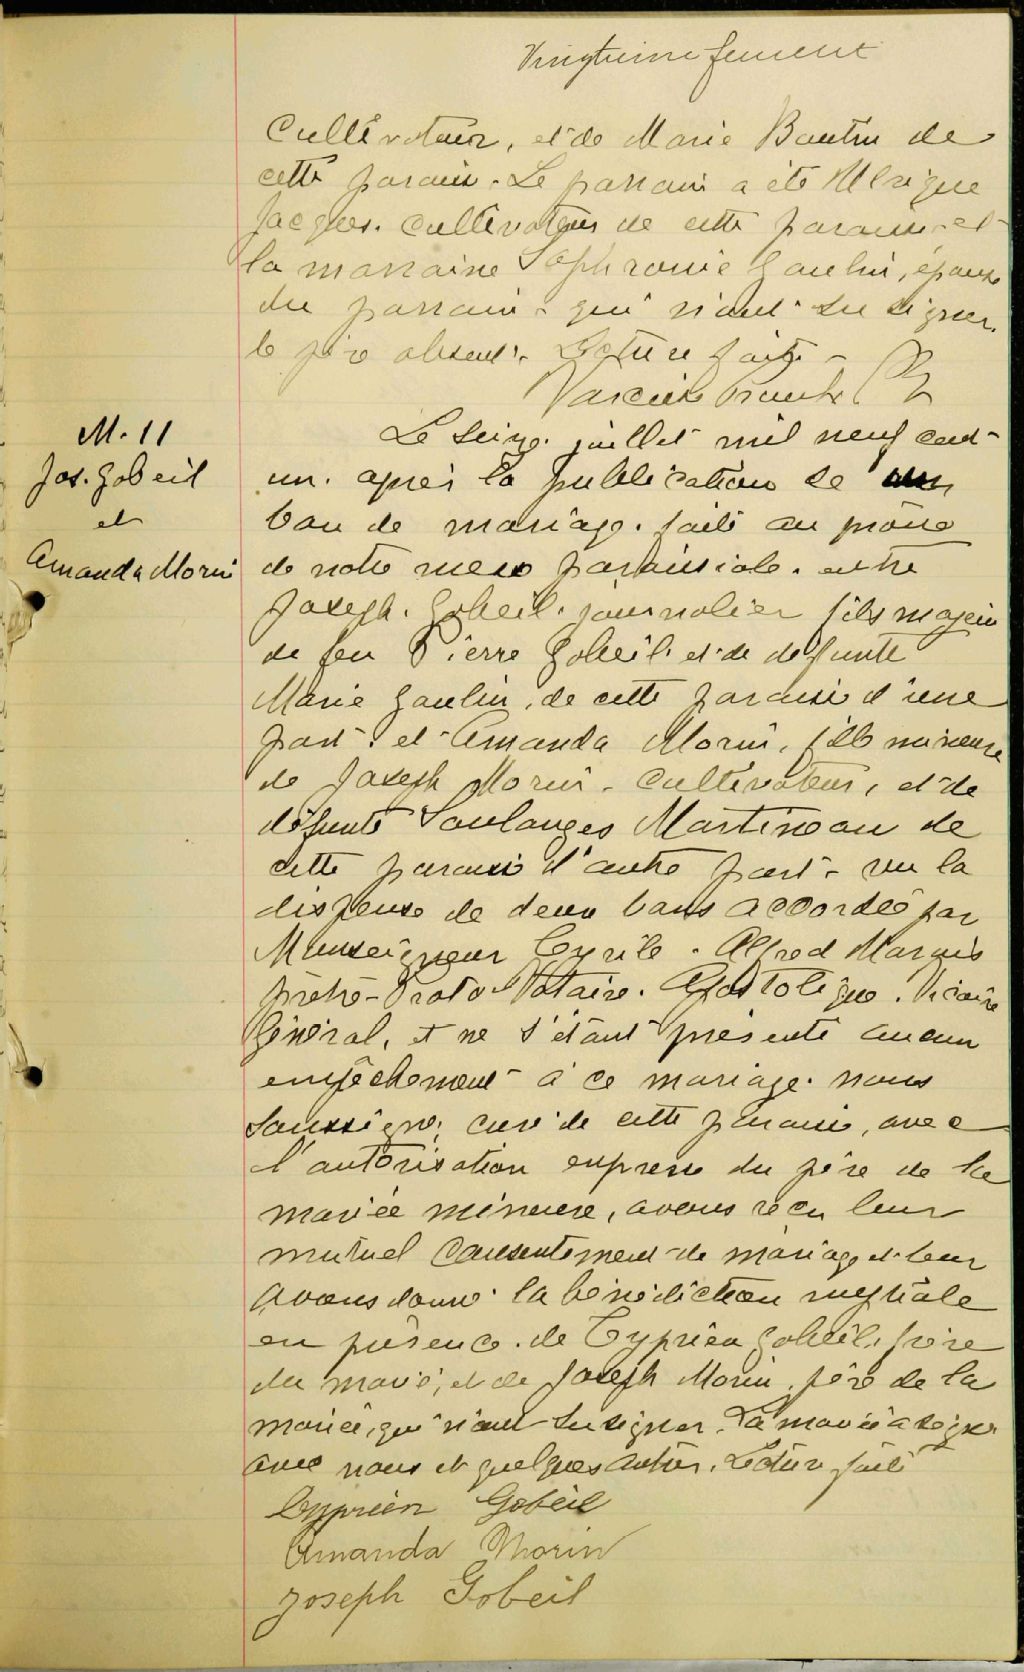 Vingtième feuillet
Cultivateur, et de Marie Boutin de
cette paroisse. Le parrain a été Ulrique
Jacques. cultivateur de cette paroisse et
la marraine Sophronie Gaulin, épouse
du parrain. qui n'ont su signer.
le père absent. Lecture faite -
M. 11
Jos. Gobeil
et
Amanda Morin
Le seize juillet mil neuf cent
un. après la publication de un
ban de mariage. faite au prône
de notre messe paroissiale. entre
Joseph. Gobeil. journalier fils majeur
de feu Pierre Gobeil et de defunte
Marie Gaulin, de cette paroisse d'une
part. et Amanda Morin, fille mineure
de Joseph Morin. Cultivateur, et de
défunte Soulanges Martineau de
cette paroisse d'autre part - vu la
dispense de deux bans accordée par
Monseigneur Cyrile. Alfred Marquis
prêtre - Proto-Notaire. Apostolique. Vicaire
Général, et ne s'étant présenté aucun
empêchement à ce mariage. nous
soussigné, curé de cette paroisse, avec
l'autorisation expresse du père de la
mariée mineure, avons reçu leur
mutuel consentement de mariage et leur
avons donné la bénédiction nuptiale
en présence. de Cyprien Gobeil. frère
du marié, et de Joseph Morin, père de la
mariée, qui n'ont su signer. La mariée a signé
avec nous et quelques autres. Lecture faite
Cyprien Gobeil
Amanda Morin
Joseph Gobeil